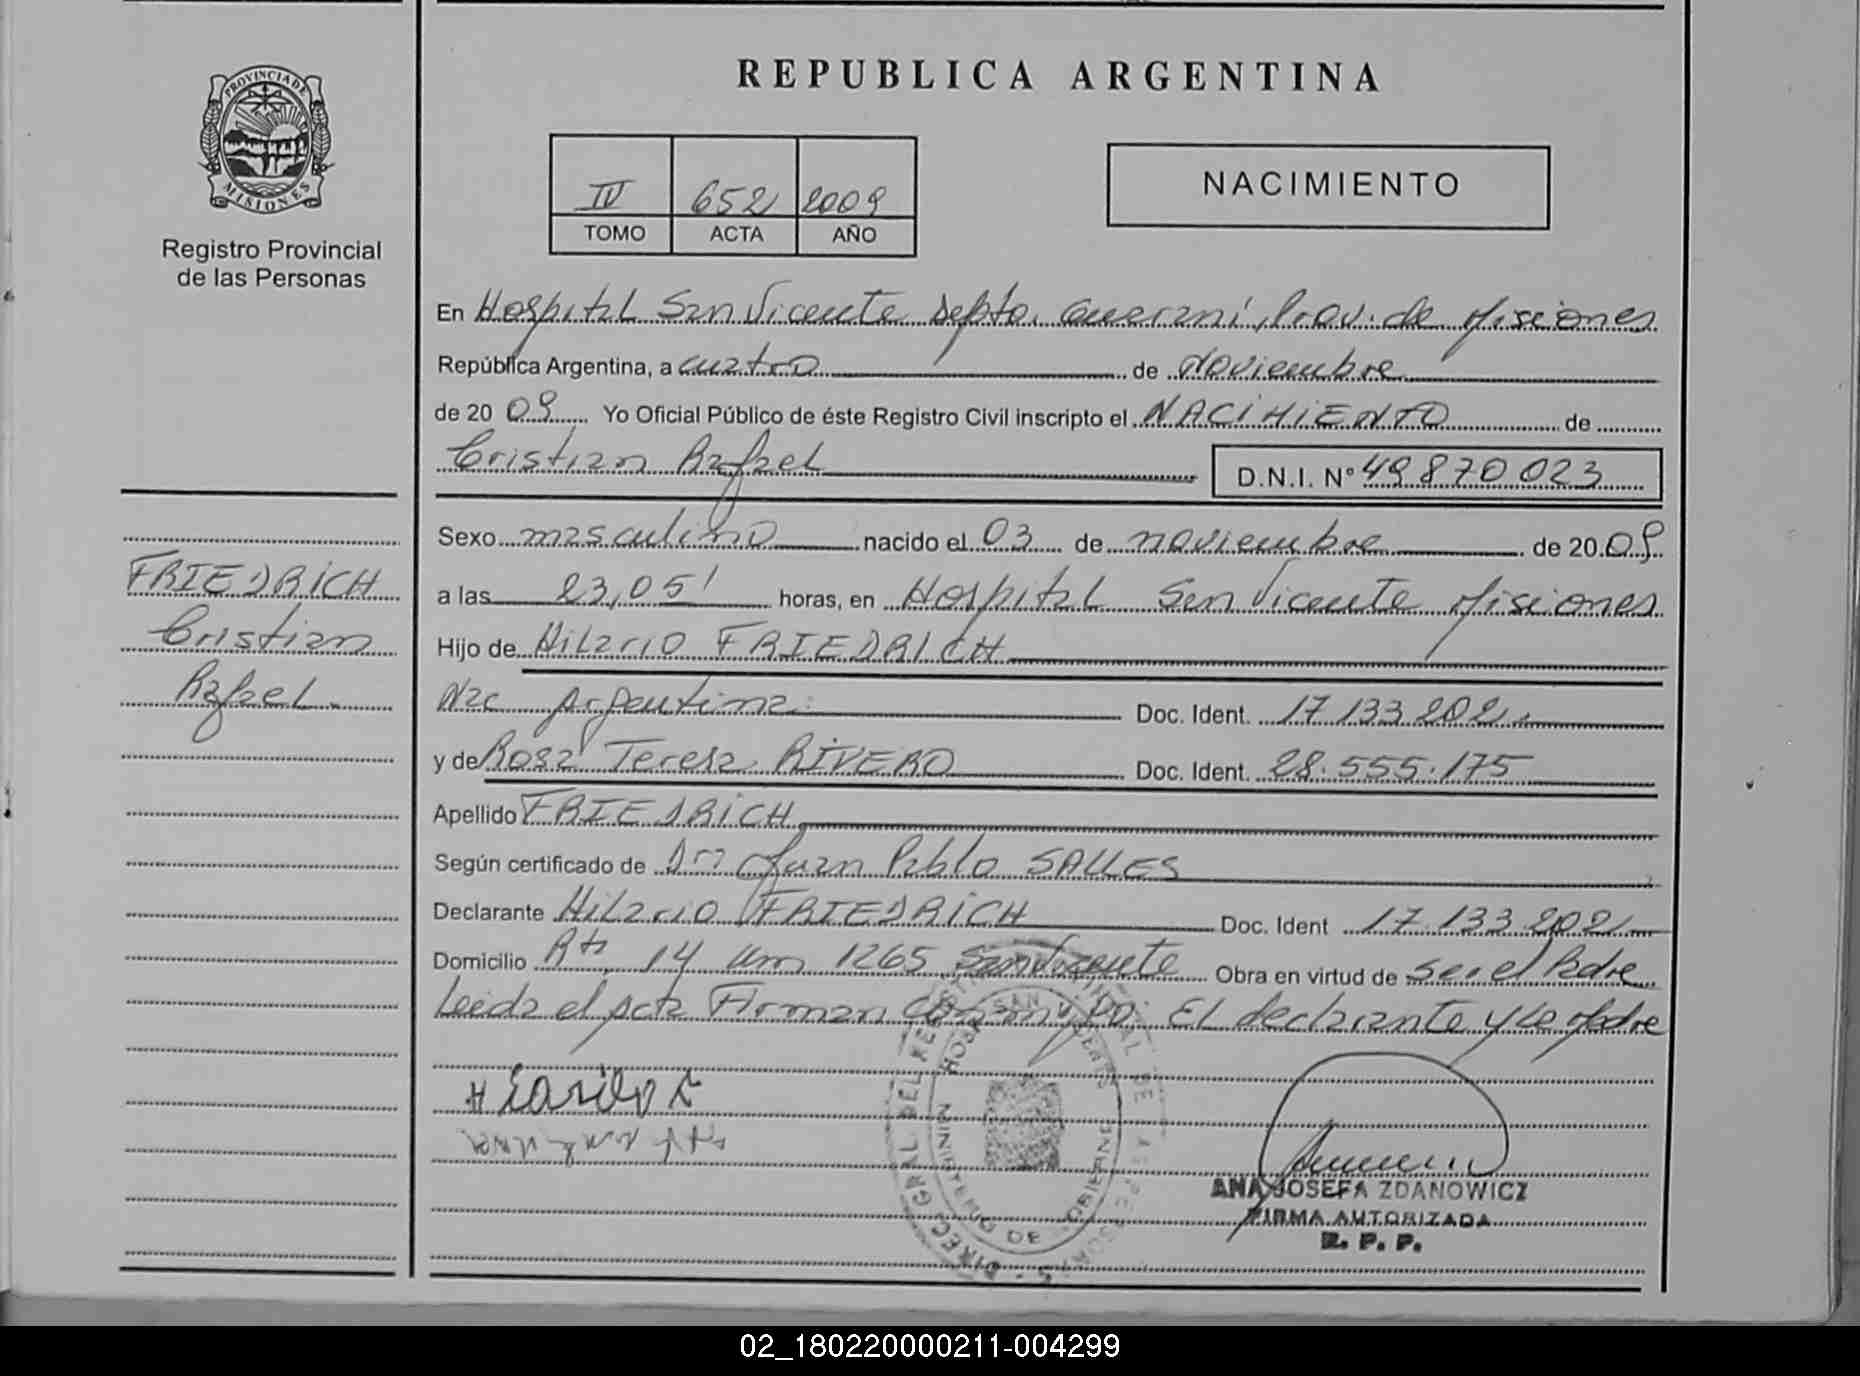 REPUBLICA ARGENTINA
PROVINCIA DE MISIONES
Registro Provincial
de las Personas
IV 652 2009
TOMO ACTA AÑO
NACIMIENTO
En Hospital San Vicente Depto. Guarani, Prov. de Misiones
República Argentina, a cuatro de Noviembre
de 20 09 Yo Oficial Público de éste Registro Civil inscripto el NACIMIENTO de
Cristian Rafael D.N.I. Nº 49870023
Sexo masculino nacido el 03 de noviembre de 20 09
a las 23,05' horas, en Hospital San Vicente Misiones
Hijo de Hilario FRIEDRICH
Nac Argentina. Doc. Ident. 17.133.202
y de Rosa Teresa RIVERO Doc. Ident. 28.555.175
Apellido FRIEDRICH
Según certificado de Dr Juan Pablo SALLES
Declarante Hilario FRIEDRICH Doc. Ident 17.133.202
Domicilio Rta 14 Km 1265 San Vicente Obra en virtud de ser el Padre
Leida el acta Firman Conmigo: El declarante y la Madre
FRIEDRICH
Cristian
Rafael.
ANA JOSEFA ZDANOWICZ
FIRMA AUTORIZADA
R. P. P.
02_180220000211-004299